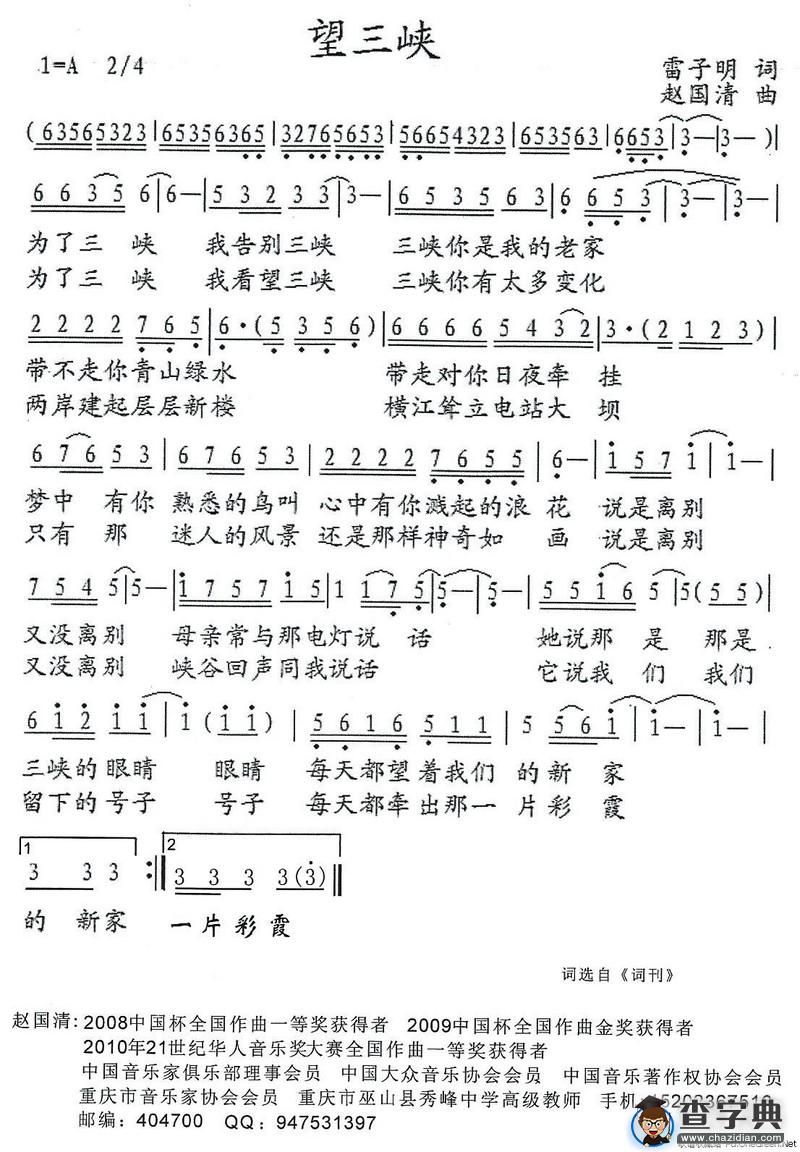 望三峡
1=A 2/4
雷子明 词
赵国清 曲
(63565323|65356365|32765653|56654323|6535563|6653|3—|3—)|
6635 6|6—|53 233|3—|6535 65|6 653|3—|3—|
为了三 峡 我告别三峡 三峡你是我的老家
为了三 峡 我看望三峡 三峡你有太多变化
2222 2765|6·(5356)|6666 5432|3·(2123)|
带不走你青山绿水 带走对你日夜牵 挂
两岸建起层层新楼 横江耸立电站大 坝
676 53|67653|22226765|6—|1571|1—|
梦中 有你 熟悉的鸟叫 心中有你溅起的浪 花 说是离别
只有 那 迷人的风景 还是那样神奇如 画 说是离别
754 5|5—|1757 15|1 175|5—|5—|5516 5|5(55)|
又没离别 母亲常与那电灯说 话 她说那 是 那是
又没离别 峡谷回声同我说话 它说我 们 我们
612 11|1(11)|5616 511|5 561|1—|1—|
三峡的 眼睛 眼睛 每天都望 着我们 的 新 家
留下的 号子 号子 每天都牵 出那一 片彩 霞
1 2
3 33:‖333 3(3)‖
的 新家 一片彩霞
词选自《词刊》
赵国清:2008中国杯全国作曲一等奖获得者 2009中国杯全国作曲金奖获得者
2010年21世纪华人音乐奖大赛全国作曲一等奖获得者
中国音乐家俱乐部理事会员 中国大众音乐协会会员 中国音乐著作权协会会员
重庆市音乐家协会会员 重庆市巫山县秀峰中学高级教师 手机
邮编:404700 QQ:947531397
查字典
www.chazidian.com